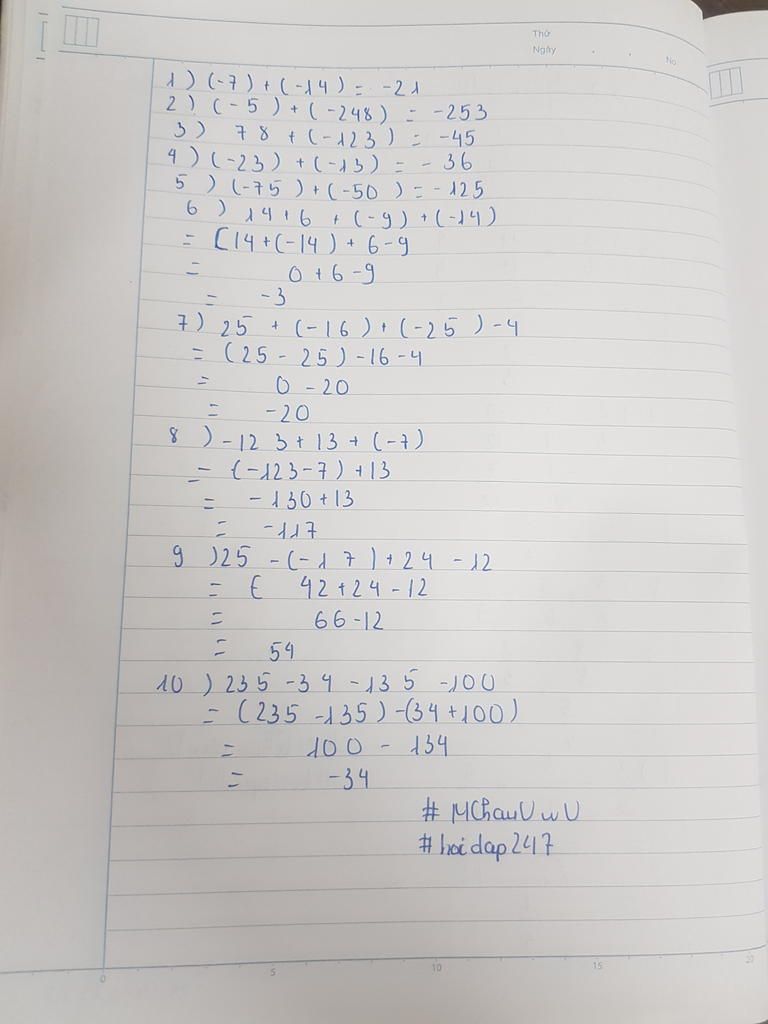 Thứ
Ngày . . No
1) (-7) + (-14) = -21
2) (-5) + (-248) = -253
3) 78 + (-123) = -45
4) (-23) + (-13) = -36
5) (-75) + (-50) = -125
6) 14+6 + (-9) + (-14)
= [14+(-14) + 6-9
= 0 + 6 -9
= -3
7) 25 + (-16) + (-25) -4
= (25 - 25) -16 -4
= 0 - 20
= -20
8) -123 + 13 + (-7)
= (-123-7) +13
= -130+13
= -117
9) 25 -(-17) + 24 -12
= ( 42 + 24 - 12
= 66 -12
= 54
10) 235 -34 -135 -100
= (235 -135) -(34+100)
= 100 - 134
= -34
# MChauUwU
#hoidap247
0 5 10 15 20